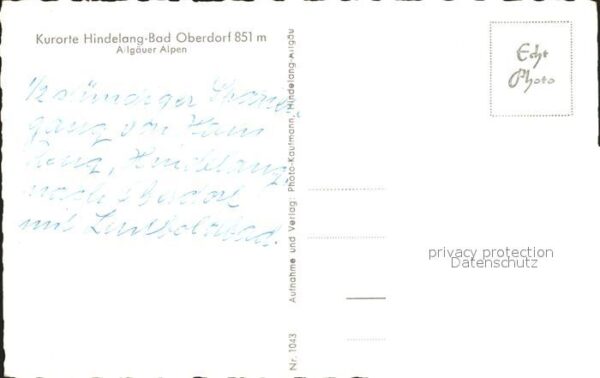 Kurorte Hindelang-Bad Oberdorf 851 m
Allgäuer Alpen
1/2 stündiger
gang von
Hindelang,
nach Oberdorf
mit
Nr. 1043 Aufnahme und Verlag: Photo-Kaufmann, Hindelang-Allgäu
Echt
Photo
privacy protection
Datenschutz